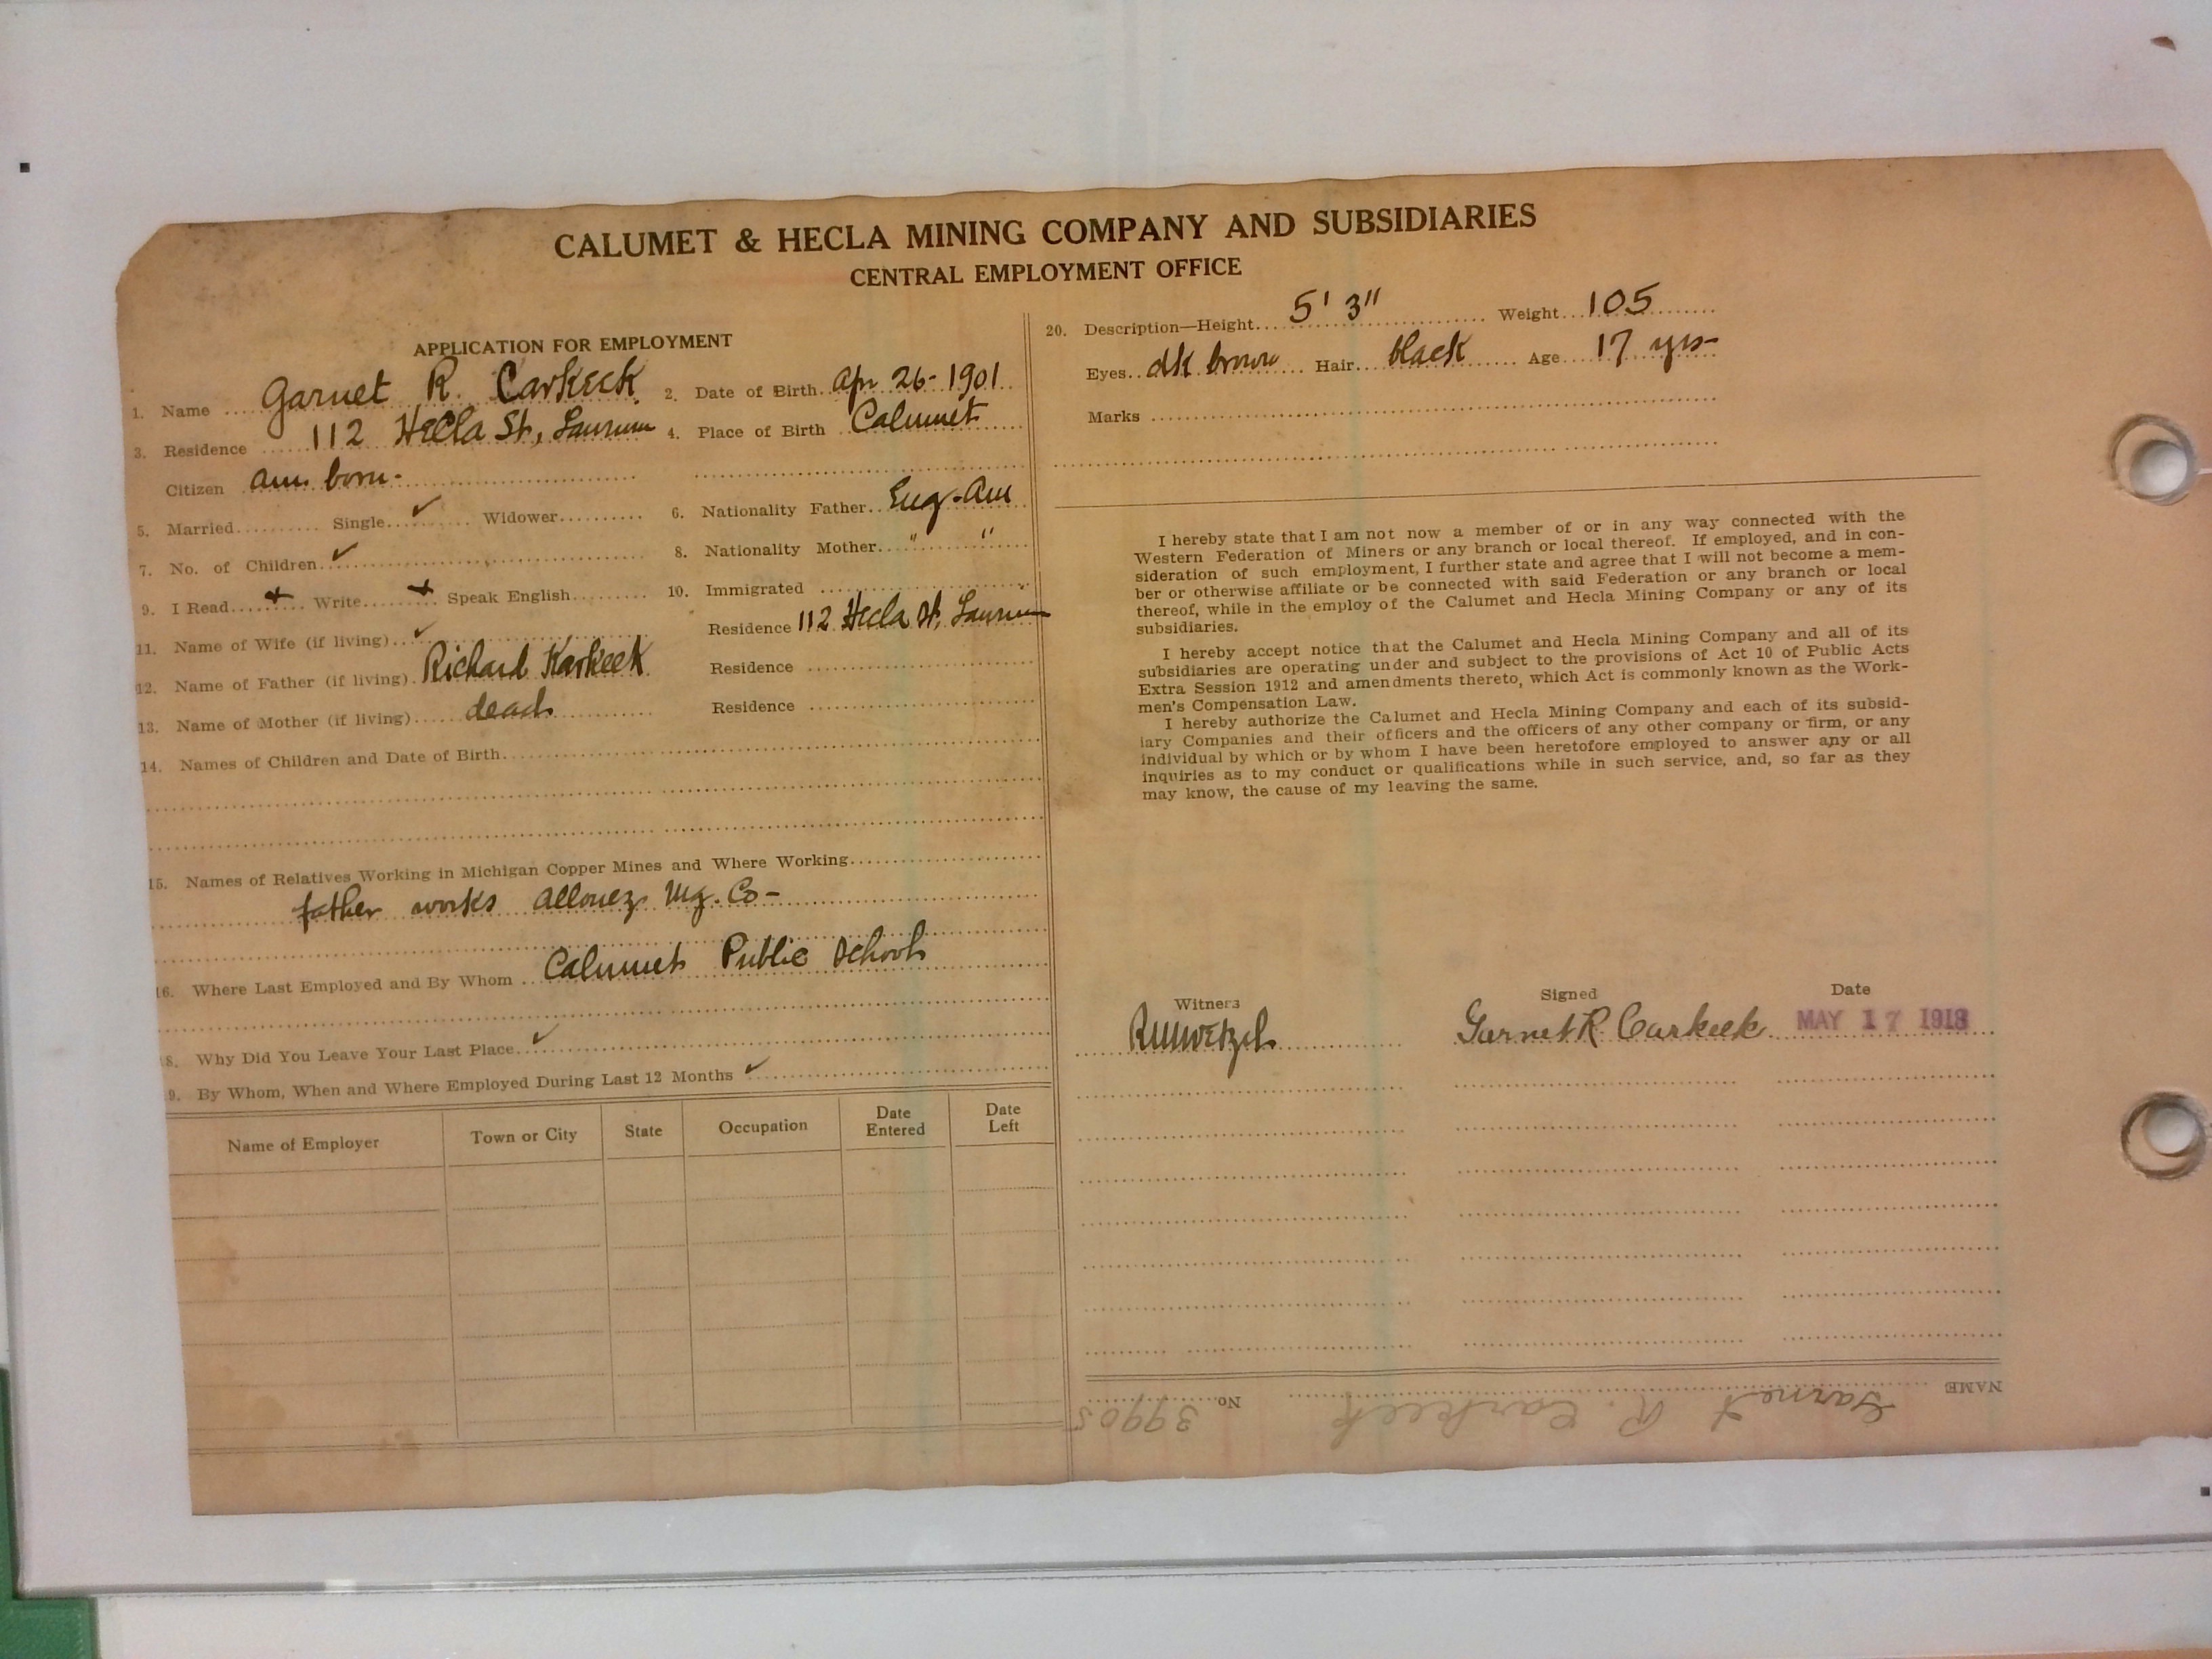 CALUMET & HECLA MINING COMPANY AND SUBSIDIARIES
CENTRAL EMPLOYMENT OFFICE
APPLICATION FOR EMPLOYMENT
1. Name Garnet R. Carkeek 2. Date of Birth Apr 26-1901
3. Residence 112 Hecla St, Laurium 4. Place of Birth Calumet
Citizen Am. born-
5. Married Single ✓ Widower 6. Nationality Father Eng-Am
7. No. of Children ✓ 8. Nationality Mother " "
9. I Read + Write + Speak English 10. Immigrated
11. Name of Wife (if living) ✓ Residence 112 Hecla St, Laurium
12. Name of Father (if living) Richard Karkeek Residence
13. Name of Mother (if living) dead Residence
14. Names of Children and Date of Birth
15. Names of Relatives Working in Michigan Copper Mines and Where Working
father works Allouez Mg. Co-
16. Where Last Employed and By Whom Calumet Public School
18. Why Did You Leave Your Last Place ✓
19. By Whom, When and Where Employed During Last 12 Months ✓
Name of Employer Town or City State Occupation Date Entered Date Left
20. Description—Height 5' 3" Weight 105
Eyes dk brown Hair black Age 17 yrs
Marks
I hereby state that I am not now a member of or in any way connected with the
Western Federation of Miners or any branch or local thereof. If employed, and in con-
sideration of such employment, I further state and agree that I will not become a mem-
ber or otherwise affiliate or be connected with said Federation or any branch or local
thereof, while in the employ of the Calumet and Hecla Mining Company or any of its
subsidiaries.
I hereby accept notice that the Calumet and Hecla Mining Company and all of its
subsidiaries are operating under and subject to the provisions of Act 10 of Public Acts
Extra Session 1912 and amendments thereto, which Act is commonly known as the Work-
men's Compensation Law.
I hereby authorize the Calumet and Hecla Mining Company and each of its subsid-
iary Companies and their officers and the officers of any other company or firm, or any
individual by which or by whom I have been heretofore employed to answer any or all
inquiries as to my conduct or qualifications while in such service, and, so far as they
may know, the cause of my leaving the same.
Witness Signed Date
RMWetzel Garnet R. Carkeek MAY 17 1918
NAME Garnet R. Carkeek No. 39905